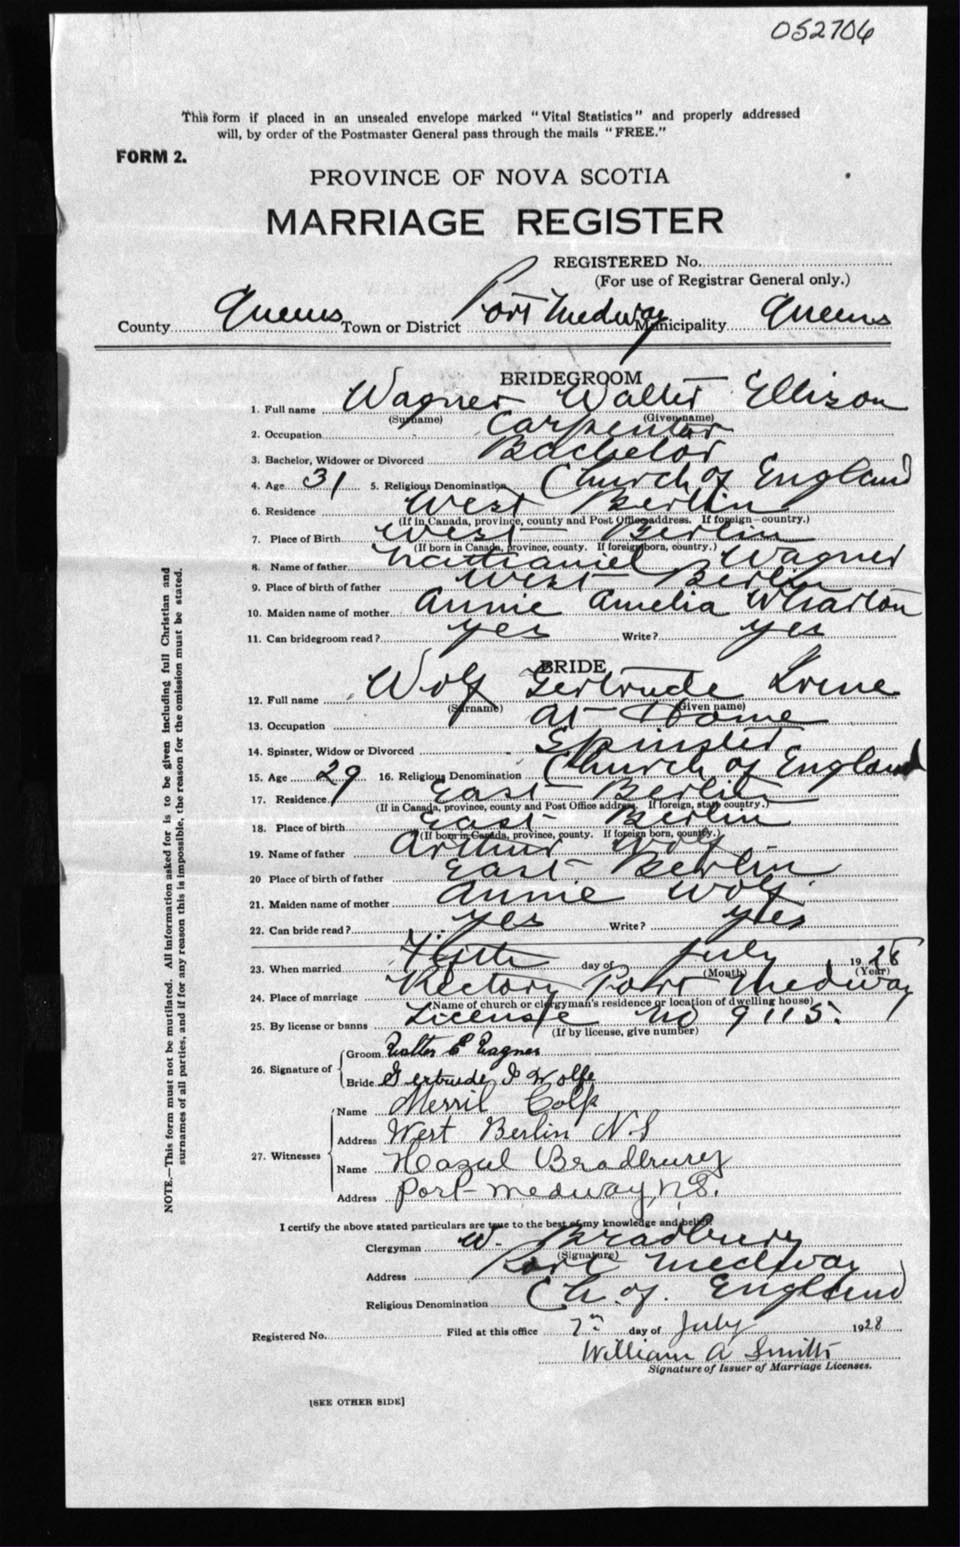 052706
This form if placed in an unsealed envelope marked "Vital Statistics" and properly addressed
will, by order of the Postmaster General pass through the mails "FREE."
FORM 2.
PROVINCE OF NOVA SCOTIA
MARRIAGE REGISTER
REGISTERED No.
(For use of Registrar General only.)
County Queens Town or District Port Medway Municipality Queens
BRIDEGROOM
1. Full name Wagner Walter Ellison
(Surname) (Given name)
2. Occupation Carpenter
3. Bachelor, Widower or Divorced Bachelor
4. Age 31 5. Religious Denomination Church of England
6. Residence West Berlin
(If in Canada, province, county and Post Office address. If foreign—country.)
7. Place of Birth West Berlin
(If born in Canada, province, county. If foreign born, country.)
8. Name of father Nathaniel Wagner
9. Place of birth of father West Berlin
10. Maiden name of mother Annie Amelia Wharton
11. Can bridegroom read? yes Write? yes
BRIDE
12. Full name Wolf Gertrude Irene
(Surname) (Given name)
13. Occupation at Home
14. Spinster, Widow or Divorced Spinster
15. Age 29 16. Religious Denomination Church of England
17. Residence East Berlin
(If in Canada, province, county and Post Office address. If foreign, state country.)
18. Place of birth East Berlin
(If born in Canada, province, county. If foreign born, country.)
19. Name of father Arthur Wolf
20 Place of birth of father East Berlin
21. Maiden name of mother Annie Wolf
22. Can bride read? yes Write? yes
23. When married day of July 1928
(Month) (Year)
24. Place of marriage Rectory Port Medway
(Name of church or clergyman's residence or location of dwelling house)
25. By license or banns License No 9115.
(If by license, give number)
26. Signature of
Groom Walter E Wagner
Bride Gertrude I Wolfe
27. Witnesses
Name Merril Colp
Address West Berlin N.S
Name Hazel Bradbury
Address Port Medway, N.S.
I certify the above stated particulars are true to the best of my knowledge and belief.
Clergyman W. Bradbury
(Signature)
Address Port Medway
Religious Denomination Ch. of. England
Registered No. Filed at this office 7th day of July 1928
William A Smith
Signature of Issuer of Marriage Licenses.
[SEE OTHER SIDE]
NOTE.—This form must not be mutilated. All information asked for is to be given including full Christian and
surnames of all parties, and if for any reason this is impossible, the reason for the omission must be stated.